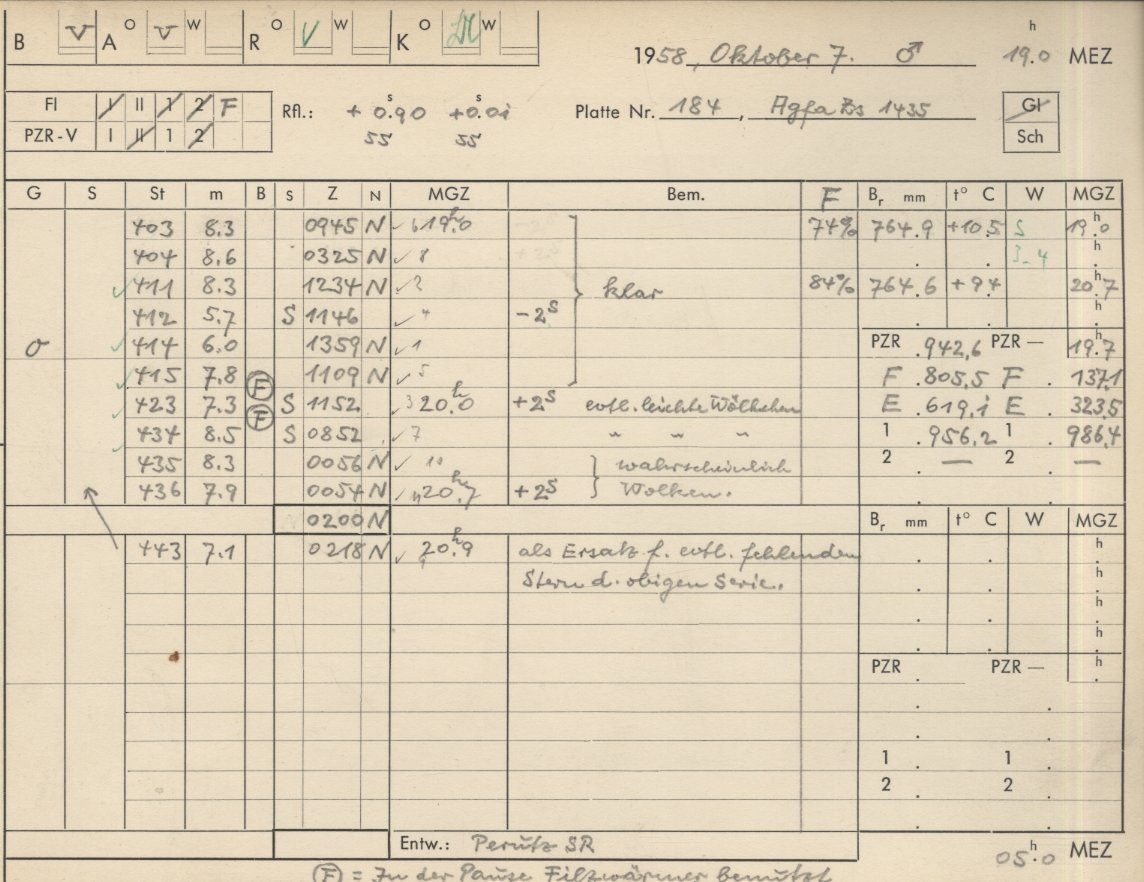 B V A O V W R O V W K O W
1958, Oktober 7. ♂ 19.0 h MEZ
FI I II 1 2 F
PZR-V I II 1 2
Rfl.: + 0.90 s +0.01 s
55 55
Platte Nr. 184, Agfa Zs 1435
Gl
Sch
G S St m B S Z N MGZ Bem. F Br mm t° C W MGZ
403 8.3 0945 N ✓ 6 19.0 h 74% 764.9 +10.5 S 19.0 h
404 8.6 0325 N ✓ 8 3-4 h
✓ 411 8.3 1234 N ✓ 2 klar 84% 764.6 +9.4 20.7 h
412 5.7 S 1146 ✓ 4 -2 s h
σ ✓ 414 6.0 1359 N ✓ 1 PZR .942,6 PZR — 19.7 h
✓ 415 7.8 F 1109 N ✓ 5 F .805,5 F . 137,1
✓ 423 7.3 F S 1152 3 20.0 h +2 s evtl. leichte Wölkchen E .619,1 E . 323,5
✓ 434 8.5 S 0852 ✓ 7 " " " 1 .956,2 1 986,4
435 8.3 0056 N ✓ 10 wahrscheinlich 2 — 2 —
436 7.9 0054 N ✓ 11 20.7 h +2 s Wolken.
0200 N Br mm t° C W MGZ
443 7.1 0218 N ✓ 9 20.9 h als Ersatz f. evtl. fehlenden h
Stern d. obigen Serie. h
h
h
PZR PZR — h
1 1
2 2
Entw.: Perutz SR
05.0 h MEZ
(F) = In der Pause Filzwärmer benutzt